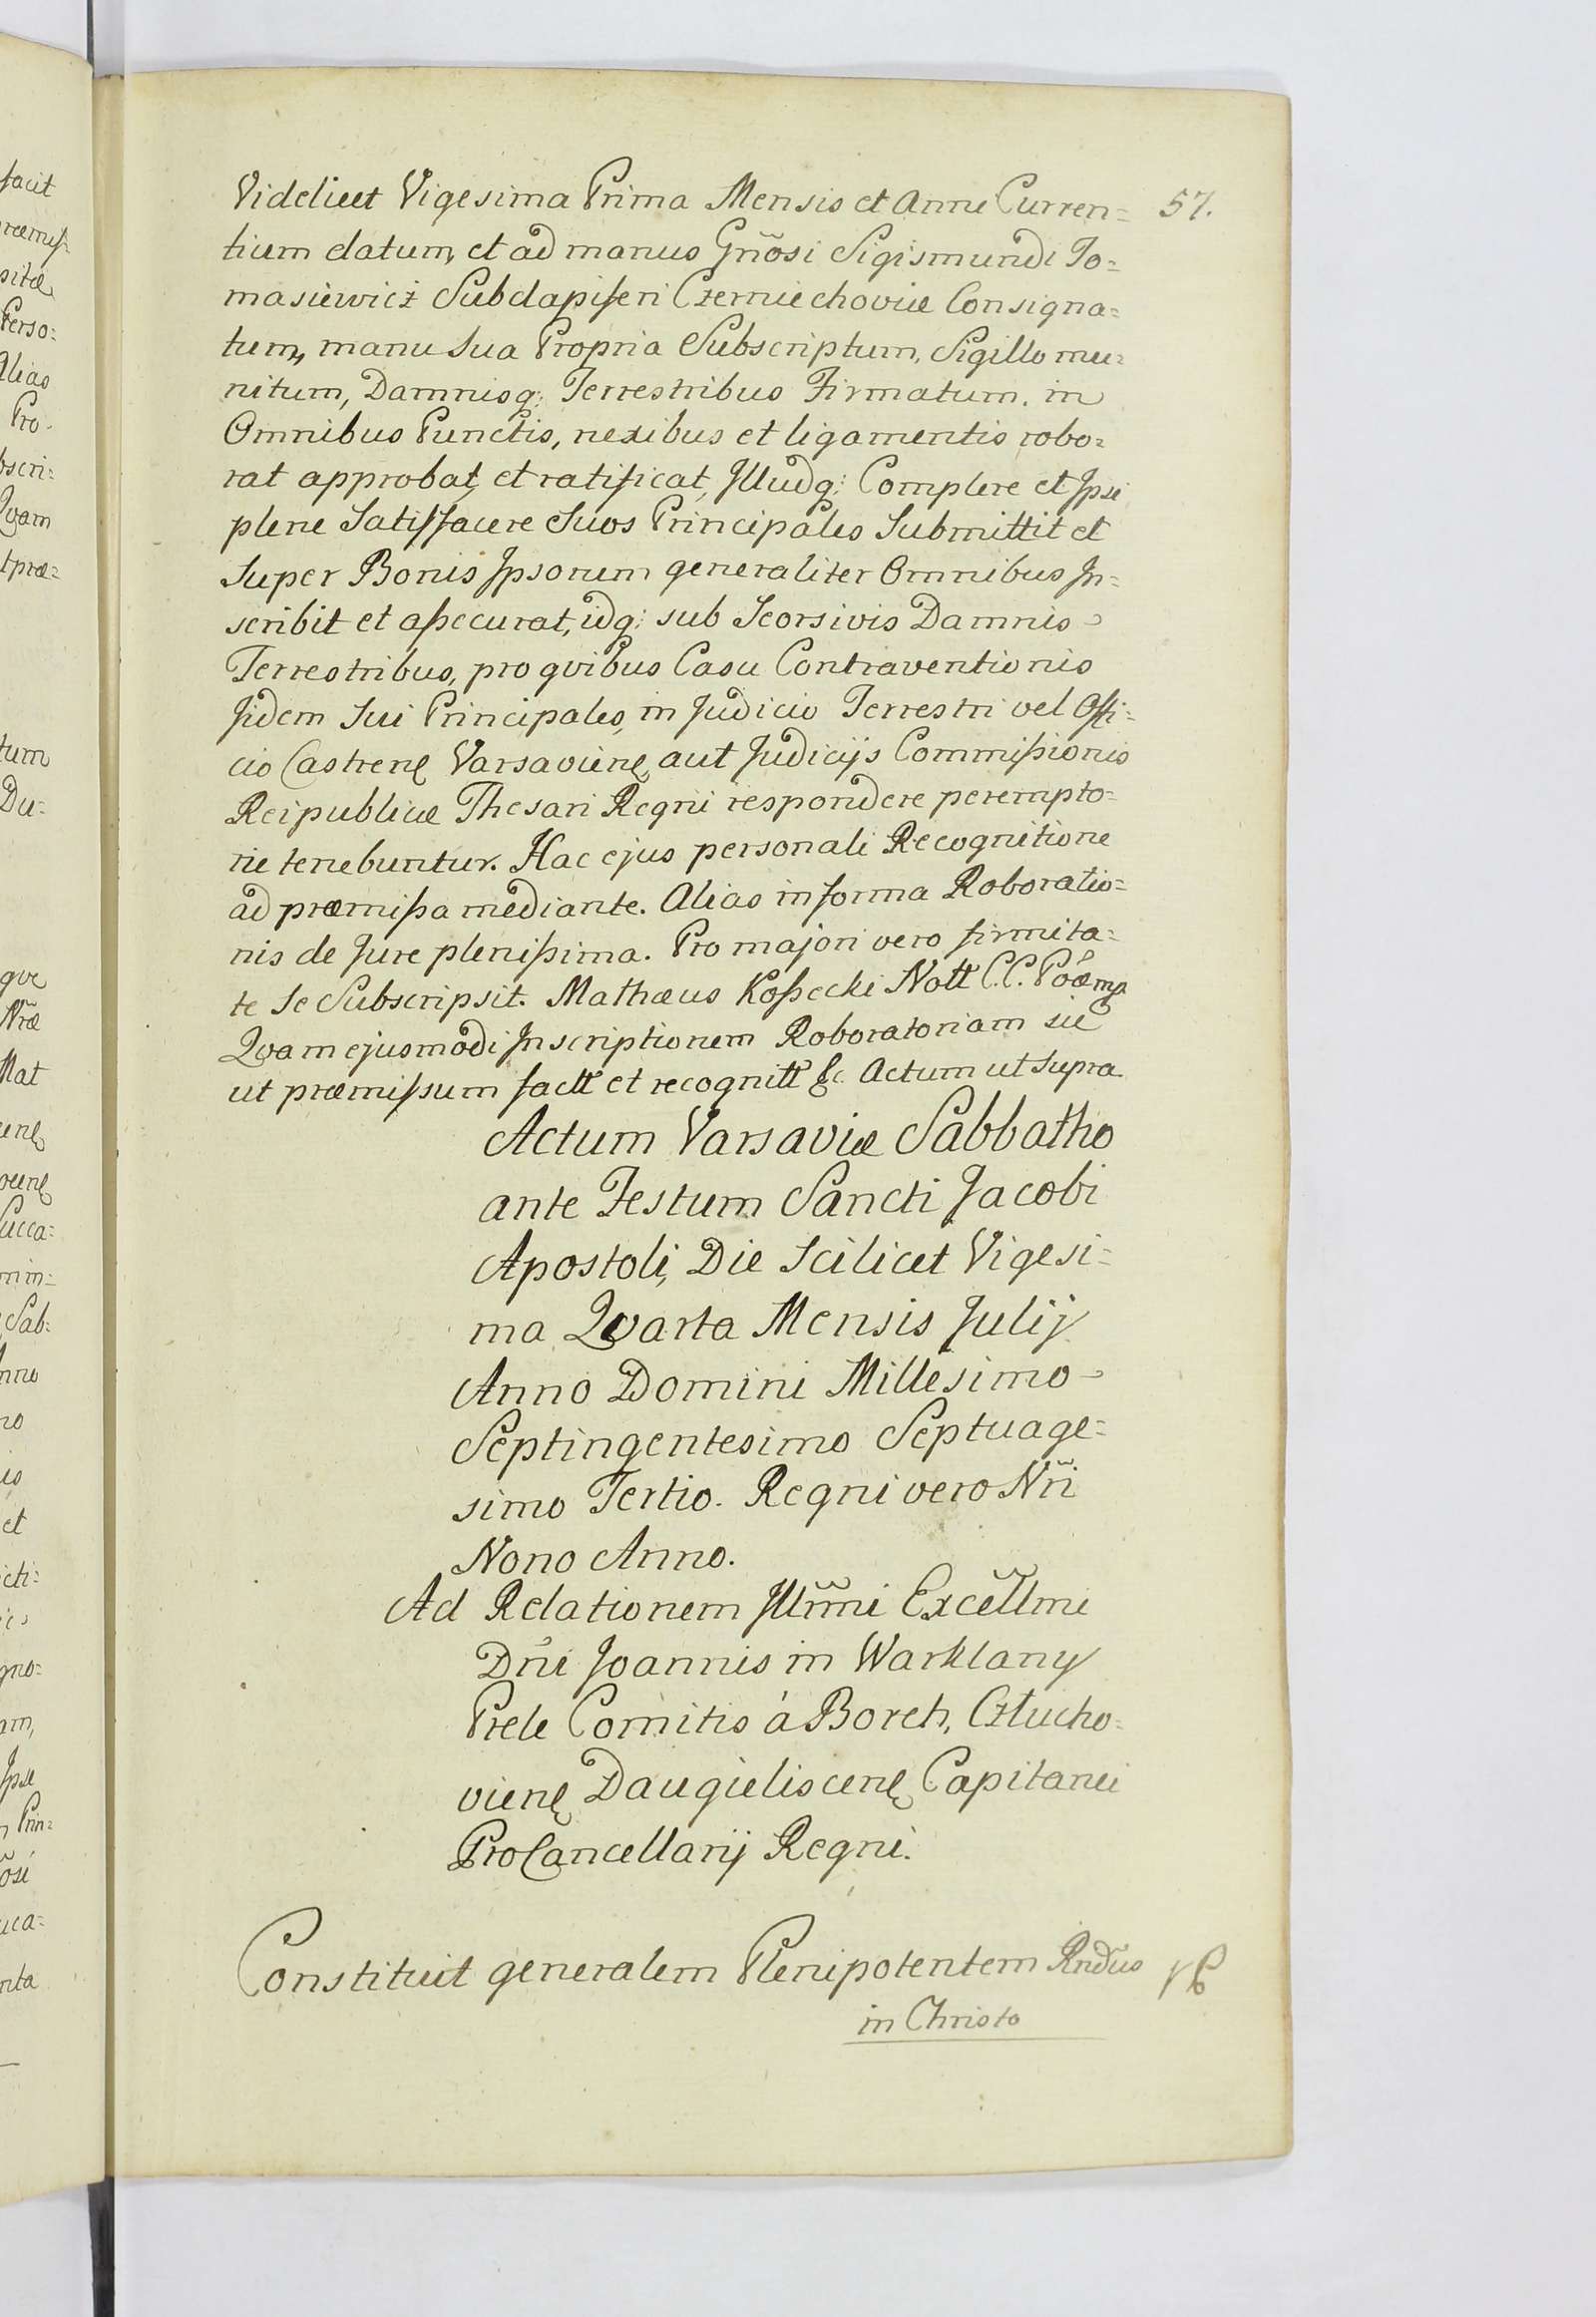 57.
Videlicet Vigesima Prima Mensis et Anni Curren=
tium datum, et ad manus Gñosi Sigismundi To=
masiewicz Subdapiferi Czerniechoviæ Consigna=
tum, manu sua Propria Subscriptum, Sigillo mu=
nitum, Damnisq; Terrestribus Firmatum. in
Omnibus Punctis, nexibus et ligamentis robo=
rat approbat, et ratificat, Illudq; Complere et Ipsi
plene Satisfacere Suos Principales Submittit et
Super Bonis Ipsorum generaliter Omnibus In=
scribit et aßecurat, idq; sub Seorsivis Damnis
Terrestribus, pro qvibus Casu Contraventionis
Iidem Sui Principales, in Judicio Terrestri vel Offi=
cio Castrenę Varsavienę aut Judicijs Commißionis
Reipublicæ Thesari Regni respondere perempto=
rie tenebuntur. Hac ejus personali Recognitione
ad præmißa mediante. Alias in forma Roboratio=
nis de Jure plenißima. Pro majori vero firmita=
te Se Subscripsit. Mathæus Koßecki Nott C.C.
Qvam ejusmodi Inscriptionem Roboratoriam sic
ut præmissum factt et recognitt &c. Actum ut Supra
Actum Varsaviæ Sabbatho
ante Festum Sancti Jacobi
Apostoli, Die Scilicet Vigesi=
ma Qvarta Mensis Julij
Anno Domini Millesimo
Septingentesimo Septuage=
simo Tertio. Regni vero Nri
Nono Anno.
Ad Relationem Illm̃i Excellmi
Dñi Joannis in Warklany
Prele Comitis à Borch, Człucho=
vienę Daugieliscenę Capitanei
ProCancellarij Regni.
Constituit generalem Plenipotentem Rndus
in Christo